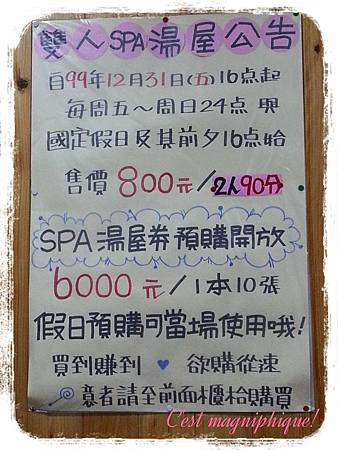 雙人SPA湯屋公告
自99年12月31日(五)16点起
每周五～周日24点與
國定假日及其前夕16点始
售價800元/2人90分
SPA湯屋券預購開放
6000元/1本10張
假日預購可當場使用哦!
買到賺到♥欲購從速
意者請至前面櫃枱購買
C'est magniphique!